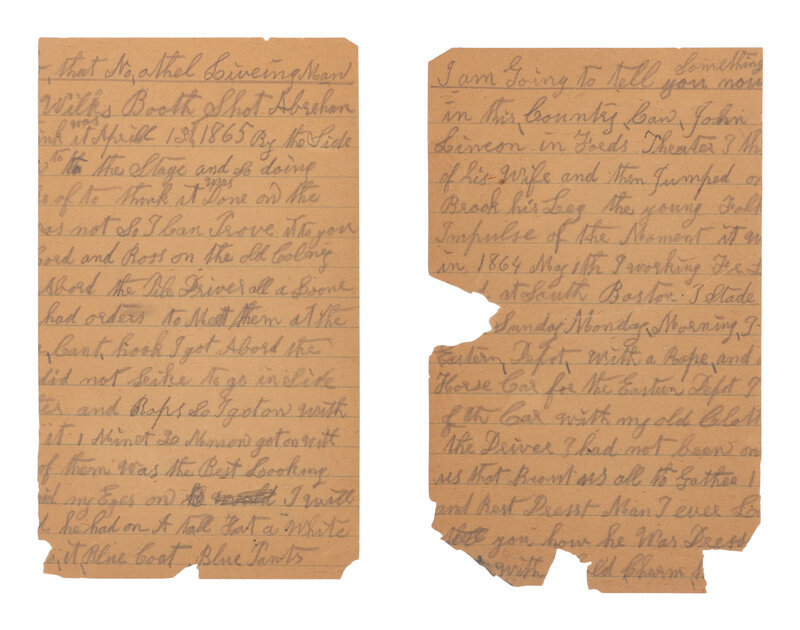 that No, othel Liveing Man
Wilks Booth Shot Abrehan
it was Aprill 13, 1865 By the Side
to the Stage and So doing
of to think it was Done on the
was not So I Can Prove it to you
Cord and Ross on the old Colony
Abord the Pile Driver all a Lone
had orders to Meet them at the
Cant, hook I got Abord the
did not Leike to go in Side
and Rops So I got on with
it 1 Minet 20 Menson got on with
of them Was the Best Looking
my Eyes on I will
he had on A tall Hat a White
it Blue Coat Blue Pants
I am Going to tell you Something now
in this Country Can, John
Lincon in Foeds Theater I
of his Wife and then Jumped
Brook his Leg the young
Impulse of the Moment it
in 1864 May 1th I working For
at South Boston I Stade
Sunday Monday Morning I
Eastern, Depot, with a Rope, and
Horse Car for the Eastern Depot I
of th Car with my old
the Driver I had not been
us that Brount us all to Gather
and Best Dresst Man I ever
you how he Was Dress
with Charm